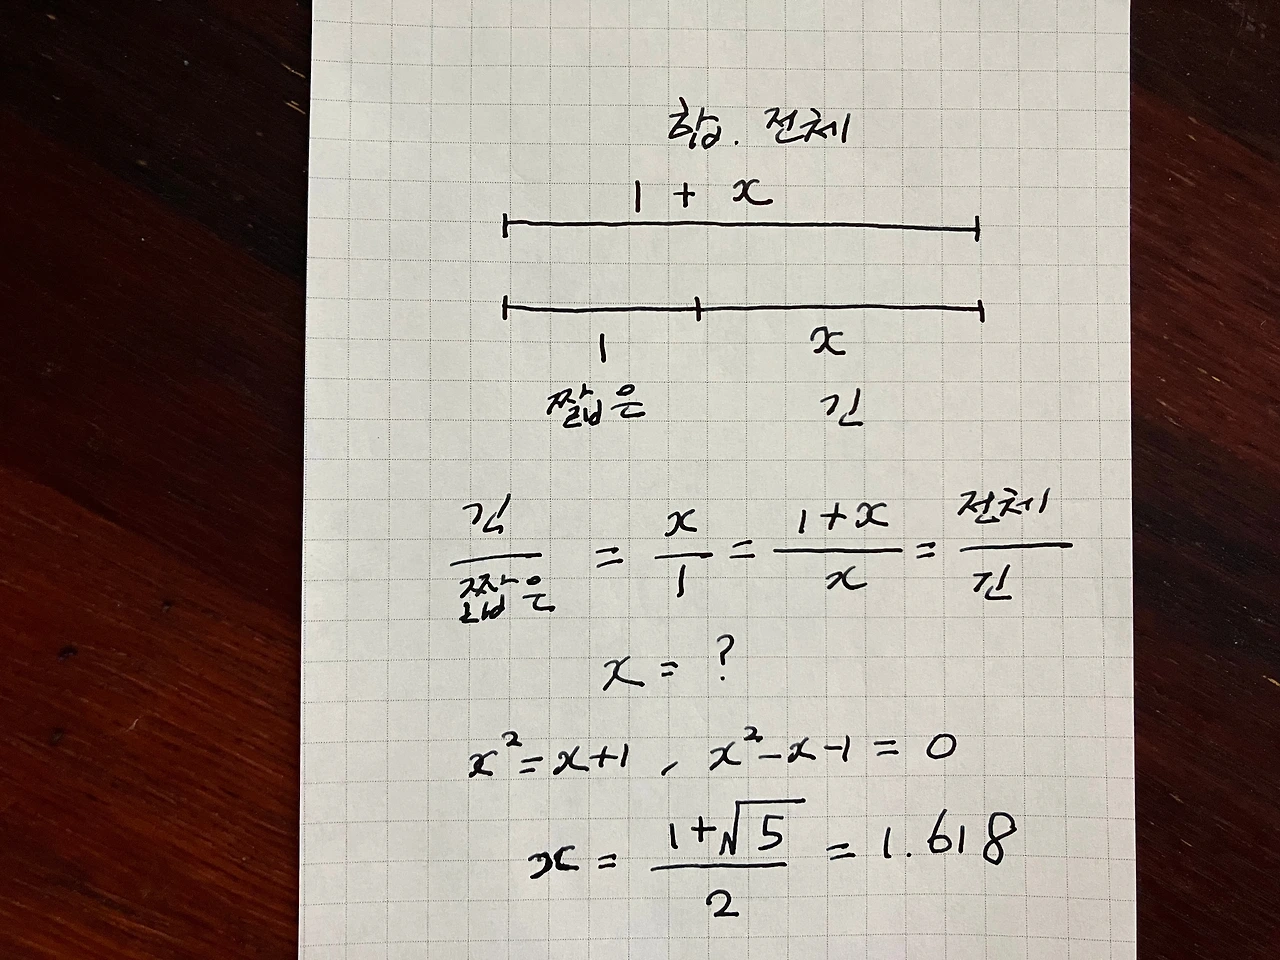 합. 전체
1 + x
1 x
짧은 긴
긴/짧은 = x/1 = 1+x/x = 전체/긴
x = ?
x²=x+1 , x²-x-1 = 0
x = 1+√5/2 = 1.618